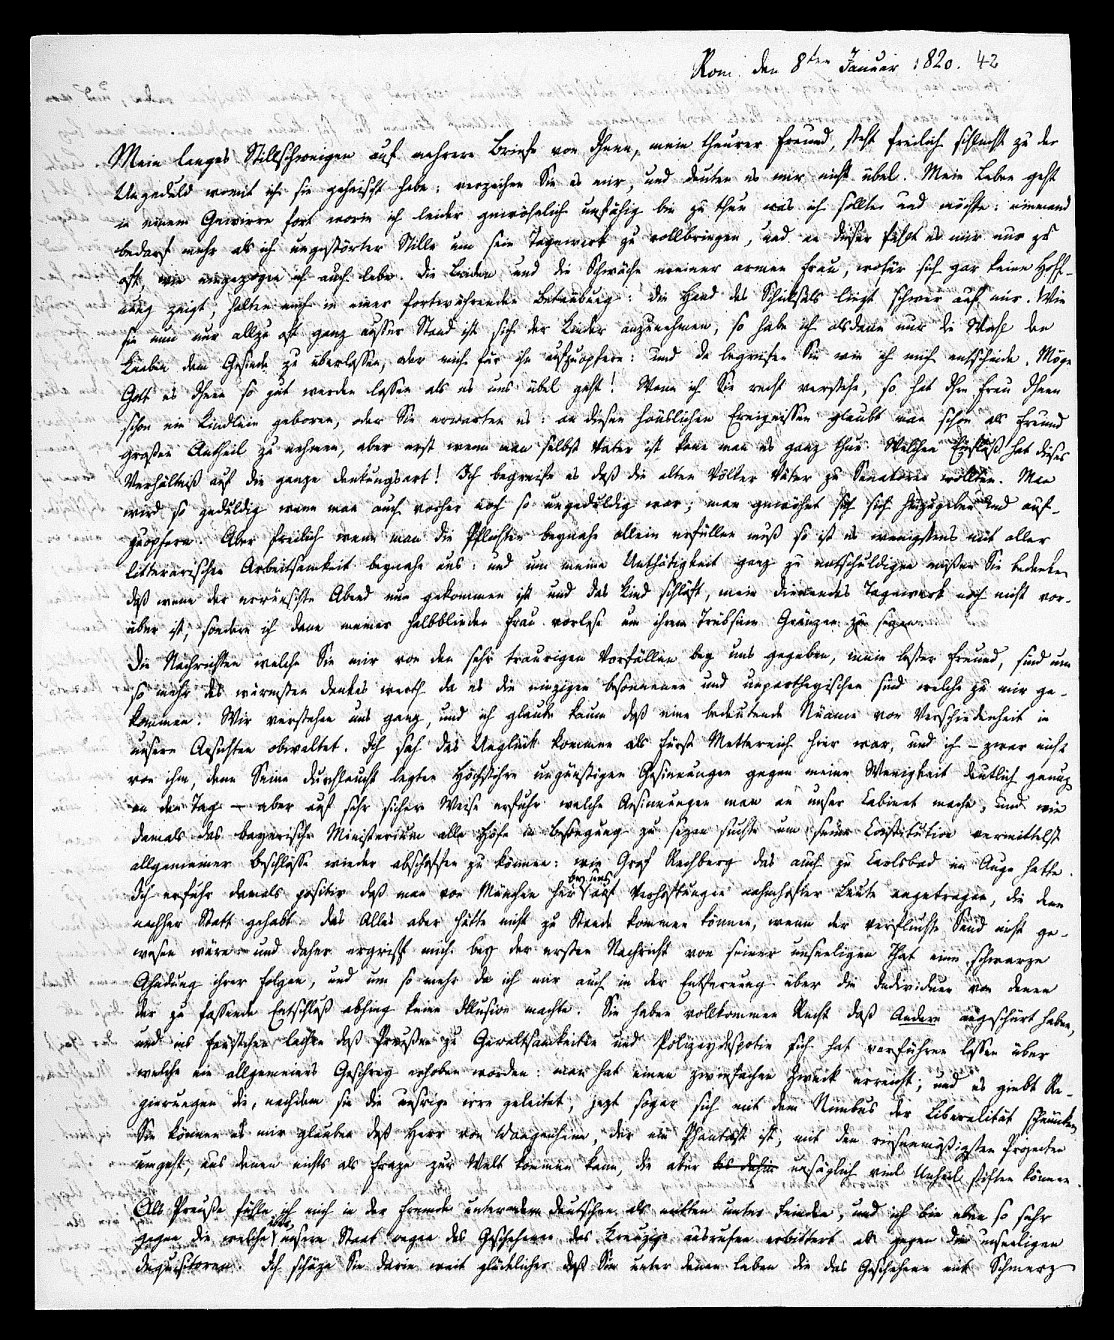 Rom den 8ten Januar 1820. 42
Mein langes Stillschweigen auf mehrere Briefe von Ihnen, mein theurer Freund, steht freilich schlecht zu der
Ungeduld womit ich sie geheischt habe: verzeihen Sie es mir, und deuten es mir nicht übel. Mein Leben geht
in einem Gewirre fort worin ich leider gewöhnlich unfähig bin zu thun was ich sollte und möchte: niemand
bedarf mehr als ich ungestörter Stille um sein Tagewerk zu vollbringen, und an dieser fehlt es mir nur zu
oft, wie eingezogen ich auch lebe. Die Leiden und die Schwäche meiner armen Frau, wofür sich gar keine Hoff-
nung zeigt, halten mich in einer fortwährenden Betäubung: die Hand des Schicksals liegt schwer auf mir. Wie
sie nun nur allzu oft ganz ausser Stand ist sich der Kinder anzunehmen, so habe ich alsdann nur die Wahl den
Knaben dem Gesinde zu überlassen, oder mich für ihn aufzuopfern: und da begreifen Sie wie ich mich entscheide. Möge
Gott es Ihnen so gut werden lassen als es uns übel geht! Wenn ich Sie recht verstehe, so hat Ihre Frau Ihnen
schon ein Kindlein geboren, oder Sie erwarten es: an diesen häuslichen Ereignissen glaubt man schon als Freund
großen Antheil zu nehmen, aber erst wenn man selbst Vater ist kann man es ganz thun. Welchen Einfluß hat dieses
Verhältniß auf die ganze Denkungsart! Ich begreife es daß die alten Völker Väter zu Senatoren wollten. Man
wird so geduldig wenn man auch vorher noch so ungeduldig war; man gewöhnt sich sich hinzugeben und auf-
zuopfern. Aber freilich wenn man die Pflichten beynahe allein erfüllen muß so ist es wenigstens mit aller
litterarischen Arbeitsamkeit beynahe aus: und um meine Unthätigkeit ganz zu entschuldigen müßen Sie bedenken
daß wenn der erwünschte Abend nun gekommen ist und das Kind schläft, mein dienendes Tagewerk noch nicht vor-
über ist, sondern ich dann meiner halbblinden Frau vorlese um ihrem Trübsinn Gränzen zu sezen.
Die Nachrichten welche Sie mir von den sehr traurigen Vorfällen bey uns gegeben, mein bester Freund, sind um
so mehr des wärmsten Dankes werth da es die einzigen besonnenen und unpartheyischen sind welche zu mir ge-
kommen. Wir verstehen uns ganz, und ich glaube kaum daß eine bedeutende Nüance von Verschiedenheit in
unsern Ansichten obwaltet. Ich sah das Unglück kommen als Fürst Metternich hier war, und ich – zwar nicht
von ihm, denn Seine Durchlaucht legten Höchstihre ungünstigen Gesinnungen gegen meine Wenigkeit deutlich genug
an den Tag – aber auf sehr sichere Weise erfuhr welche Ansinnungen man an unser Cabinet mache, und wie
damals das bayerische Ministerium alle Höfe in Bewegung zu sezen suchte um seine Constitution vermittelst
allgemeiner Beschlüsse wieder abschaffen zu können: wie Graf Rechberg das auch zu Carlsbad im Auge hatte.
Ich erfuhr damals positiv daß man von München her bey uns auf Verhaftungen namhafter Leute angetragen, die denn
nachher Statt gehabt. Das Alles aber hätte nicht zu Stande kommen können, wenn der verfluchte Sand nicht ge-
wesen wäre und daher ergriff mich bey der ersten Nachricht von seiner unseeligen That eine schwarze
Ahndung ihrer Folgen, und um so mehr da ich mir auch in der Entfernung über die Individuen von denen
der zu fassende Entschluß abhing keine Illusion machte. Sie haben vollkommen Recht daß Andere angeschürt haben,
und ins Fäustchen lachen daß Preußen zu Gewaltsamkeiten und Polizeydespotie sich hat verführen lassen über
welche ein allgemeines Geschrey erhoben worden: man hat einen zwiefachen Zweck erreicht; und es giebt Re-
gierungen die, nachdem sie die unsrige irre geleitet, jezt sogar sich mit dem Nimbus der Liberalität schmücken.
Sie können es mir glauben daß Herr von Wangenheim, der ein Phantast ist, mit den Projecten
umgeht, aus denen nichts als Fraze zur Welt kommen kann, die aber unsäglich viel Unheil stiften können.
Als Preuße fühle ich mich in der Fremde unter den Deutschen als mitten unter Feinden, und ich bin eben so sehr
gegen die welche über unsern Staat wegen des Geschehenen das Kreuzige ausrufen erbittert als gegen die unseeligen
Inquisitoren. Ich schäze Sie darin weit glücklicher daß Sie unter denen leben die das Geschehene mit Schmerz